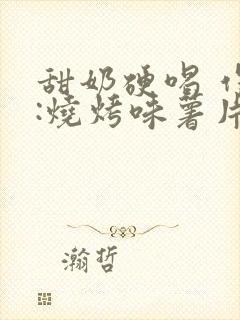 甜奶硬唱 作
:燒烤味薯片
瀚哲